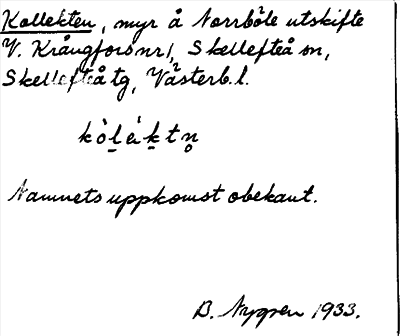 Kollekten, myr å Norrböle utskifte
V. Krångfors nr 1, Skellefteå sn,
Skellefteå tg, Västerb. l.
kòl̠ék̠tn̥
Namnets uppkomst obekant.
B. Nygren 1933.